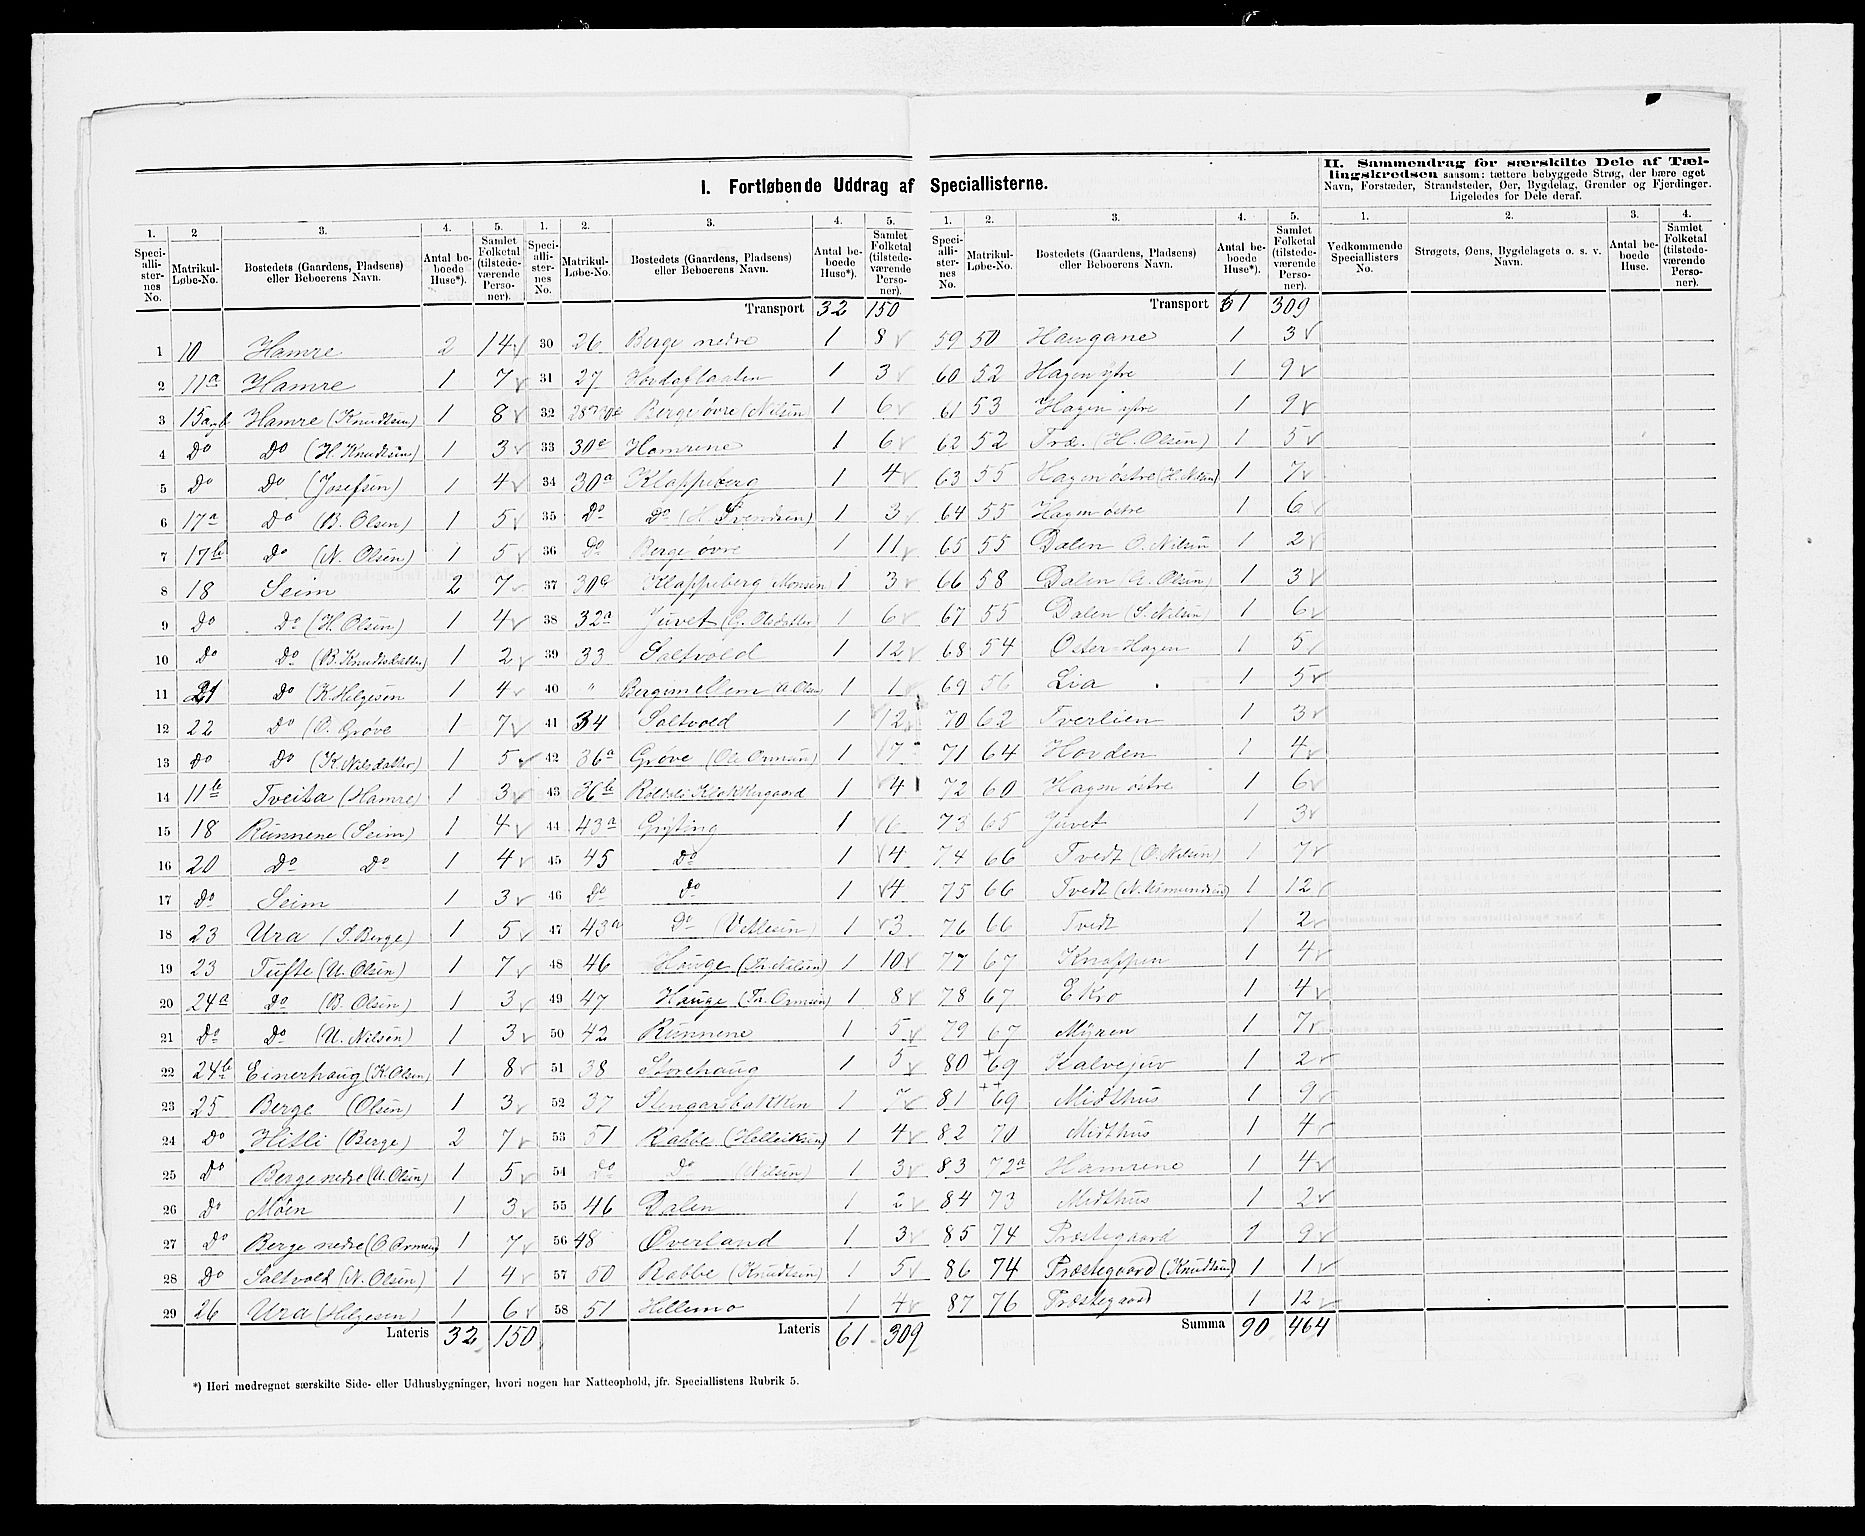 I. Fortløbende Uddrag af Speciallisterne.
1. 2 3. 4. 5.
Speciallisternes No. Matrikul-Løbe-No. Bostedets (Gaardens, Pladsens) eller Beboerens Navn. Antal beboede Huse*). Samlet Folketal (tilstedeværende Personer).
1 10 Hamre 2 14
2 11a Hamre 1 7
3 15a,b Hamre (Knudtsen) 1 8
4 Do Do (H. Knudtsen) 1 3
5 Do Do (Josefsen) 1 4
6 17a Do (B. Olsen) 1 5
7 17b Do (N. Olsen) 1 5
8 18 Seim 2 7
9 Do Do (H. Olsen) 1 4
10 Do Do (B. Knudtsdatter) 1 2
11 21 Do (K. Helgesen 1 4
12 22 Do (O. Grøve 1 7
13 Do Do (K. Nilsdatter) 1 5
14 11b Tveita (Hamre) 1 3
15 18 Runnene (Seim) 1 4
16 20 Do Do 1 4
17 Do Seim 1 3
18 23 Ura (S. Berge) 1 5
19 23 Tufte (A. Olsen) 1 7
20 24a Do (B. Olsen) 1 3
21 Do Do (A. Nilsen) 1 3
22 24b Einerhaug (K. Olsen) 1 8
23 25 Berge (Olsen) 1 3
24 Do Hitli (Berge) 2 7
25 Do Berge nedre (A. Olsen) 1 5
26 Do Moen 1 3
27 Do Berge nedre (O. Ormsen) 1 7
28 Do Saltvold (N. Olsen) 1 4
29 26 Ura (Helgesen) 1 6
Lateris 32 150
1. 2. 3. 4. 5.
Speciallisternes No. Matrikul-Løbe-No. Bostedets (Gaardens, Pladsens) eller Beboerens Navn. Antal beboede Huse*). Samlet Folketal (tilstedeværende Personer).
Transport 32 150
30 26 Berge nedre 1 8
31 27 1 3
32 Berge øvre (Nilsen 1 6
33 30e Hamrene 1 6
34 30a Klappeberg 1 4
35 Do Do (N. Svendsen) 1 3
36 Do Berge øvre 1 11
37 30a Klappeberg Monsen) 1 3
38 32a Juvet (G. Olsdatter) 1 6
39 33 Saltvold 1 12
40 " Bergemellem A. Olsen) 1 1
41 34 Saltvold 1 12
42 36a Grøve (Ole Ormsen) 1 7
43 36b Røldals Klokkergaard 1 4
44 43a Gryting 1 6
45 45 Do 1 4
46 Do Do 1 4
47 43a Do (Vetlesen) 1 3
48 46 Hauge (Nilsen) 1 10
49 47 Hauge (Th. Ormsen) 1 8
50 42 Runnene 1 5
51 38 Storehaug 1 5
52 37 Stengarsbakken 1 7
53 51 Rabbe (Helleiksen) 1 4
54 Do Do (Nilsen) 1 3
55 46 Dalen 1 2
56 48 Øverland 1 3
57 50 Rabbe (Knudtsen) 1 5
58 51 Hellemo 1 4
Lateris 61 309
1. 2. 3. 4. 5.
Speciallisternes No. Matrikul-Løbe-No. Bostedets (Gaardens, Pladsens) eller Beboerens Navn. Antal beboede Huse*). Samlet Folketal (tilstedeværende Personer).
Transport 61 309
59 50 Haugane 1 3
60 52 Hagen ytre 1 9
61 53 Hagen ytre 1 9
62 52 Træ. (H. Olsen) 1 5
63 55 Hagen østre (H. Nilsen) 1 7
64 55 Hagen østre 1 6
65 55 Dalen O. Nilsen 1 2
66 58 Dalen (A. Olsen) 1 3
67 55 Dalen (S. Nilsen) 1 6
68 54 Øster-Hagen 1 5
69 56 Lia 1 5
70 62 Tverlien 1 3
71 64 Hovden 1 4
72 60 Hagen østre 1 6
73 65 Juvet 1 3
74 66 Tvedt (O. Nilsen) 1 7
75 66 Tvedt (N. Asmundsen) 1 12
76 66 Tvedt 1 2
77 67 Knappen 1 4
78 67 Ekro 1 4
79 67 Myren 1 7
80 +69 Kalvejuv 1 2
81 ++69 Midthus 1 9
82 70 Midthus 1 4
83 72a Hamrene 1 4
84 73 Midthus 1 2
85 74 Præstegaard 1 9
86 74 Præstegaard (Knudtsen) 1 1
87 76 Præstegaard 1 12
Summa 90 464
II. Sammendrag for særskilte Dele af Tællingskredsen saasom: tættere bebyggede Strøg, der bære eget Navn, Forstæder, Strandsteder, Øer, Bygdelag, Grender og Fjerdinger. Ligeledes for Dele deraf.
1. 2. 3. 4.
Vedkommende Speciallisters No. Strøgets, Øens, Bygdelagets o. s. v. Navn. Antal beboede Huse. Samlet Folketal (tilstedeværende Personer).
*) Heri medregnet særskilte Side- eller Udhusbygninger, hvori nogen har Natteophold, jfr. Speciallistens Rubrik 5.